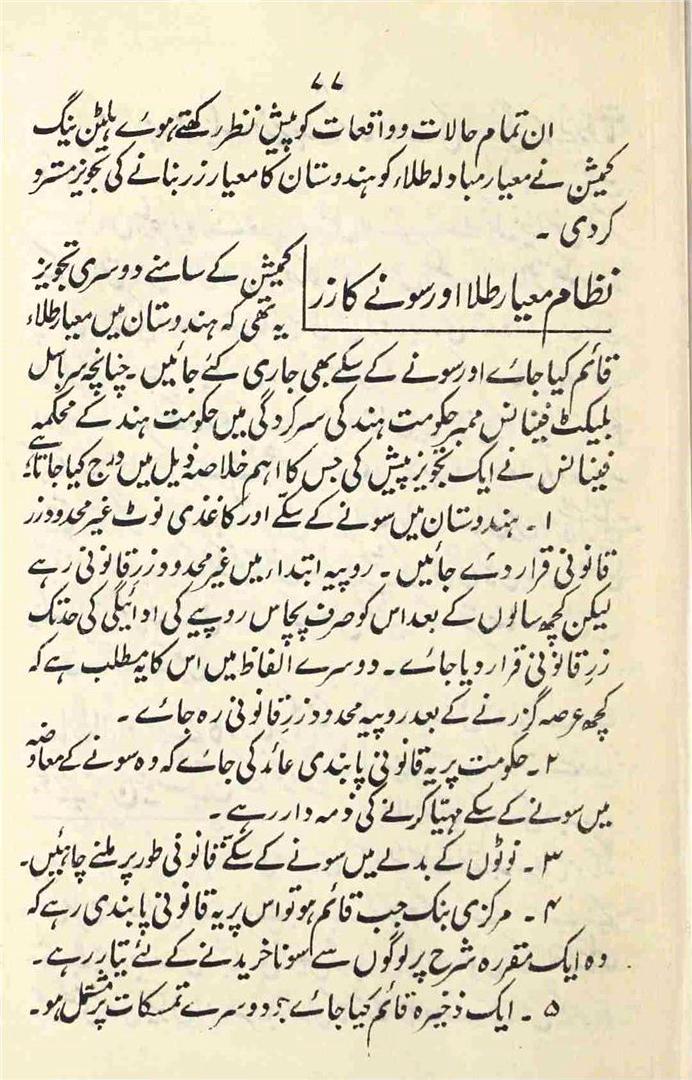 ۷۷
ان تمام حالات و واقعات کو پیش نظر رکھتے ہوئے ہلٹن ینگ
کمیشن نے معیار مبادلہ طلاء کو ہندوستان کا معیار زر بنانے کی تجویز مسترد
کر دی ۔
نظام معیار طلا اور سونے کا زر
کمیشن کے سامنے دوسری تجویز
یہ تھی کہ ہندوستان میں معیار طلاء
قائم کیا جائے اور سونے کے سکے بھی جاری کئے جائیں ۔ چنانچہ سر باسل
بلیکٹ فینانس ممبر حکومت ہند کی سرکردگی میں حکومت ہند کے محکمہ
فینانس نے ایک تجویز پیش کی جس کا اہم خلاصہ ذیل میں درج کیا جاتا ہے
۱ ۔ ہندوستان میں سونے کے سکّے اور کاغذی نوٹ غیر محدود زر
قانونی قرار دئے جائیں ۔ روپیہ ابتداء میں غیر محدود زرِ قانونی رہے
لیکن کچھ سالوں کے بعد اس کو صرف پچاس روپیے کی ادائیگی کی حد تک
زرِ قانونی قرار دیا جائے ۔ دوسرے الفاظ میں اس کا یہ مطلب ہے کہ
کچھ عرصہ گزرنے کے بعد روپیہ محدود زرِ قانونی رہ جائے ۔
۲ ۔ حکومت پر یہ قانونی پابندی عائد کی جائے کہ وہ سونے کے معاوضہ
میں سونے کے سکے مہیّا کرنے کی ذمہ دار رہے ۔
۳ ۔ نوٹوں کے بدلے میں سونے کے سکّے قانونی طور پر ملنے چاہئیں ۔
۴ ۔ مرکزی بنک جب قائم ہو تو اس پر یہ قانونی پابندی رہے کہ
وہ ایک مقررہ شرح پر لوگوں سے سونا خریدنے کے لئے تیار رہے ۔
۵ ۔ ایک ذخیرہ قائم کیا جائے جو دوسرے تمسکات پر مشتمل ہو ۔